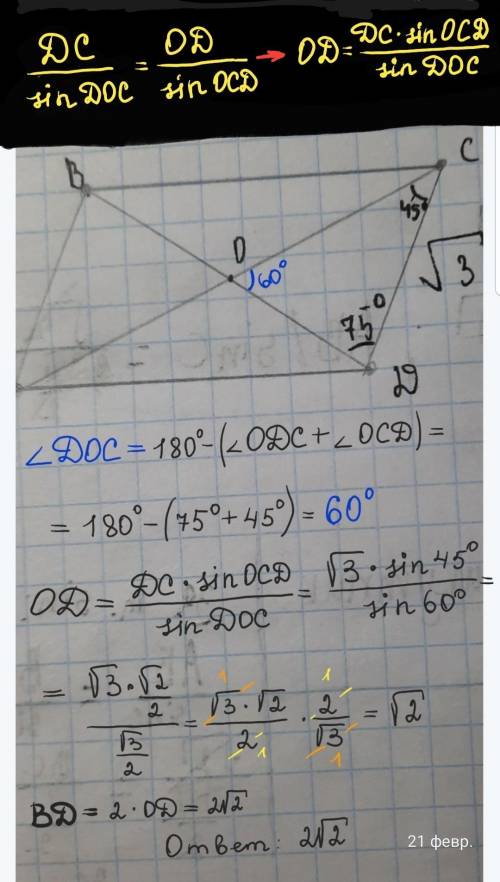 DC/sin DOC = OD/sin OCD → OD = DC·sin OCD/sin DOC
B
C
45°
O
60°
√3
75°
D
∠DOC = 180° - (∠ODC + ∠OCD) =
= 180° - (75° + 45°) = 60°
OD = DC·sin OCD/sin DOC = √3·sin 45°/sin 60° =
= (√3·√2/2)/(√3/2) = √3·√2/2 · 2/√3 = √2
BD = 2·OD = 2√2
Ответ: 2√2
21 февр.